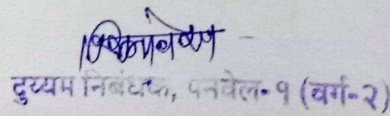 दुय्यम निबंधक, पनवेल-१ (वर्ग-२)